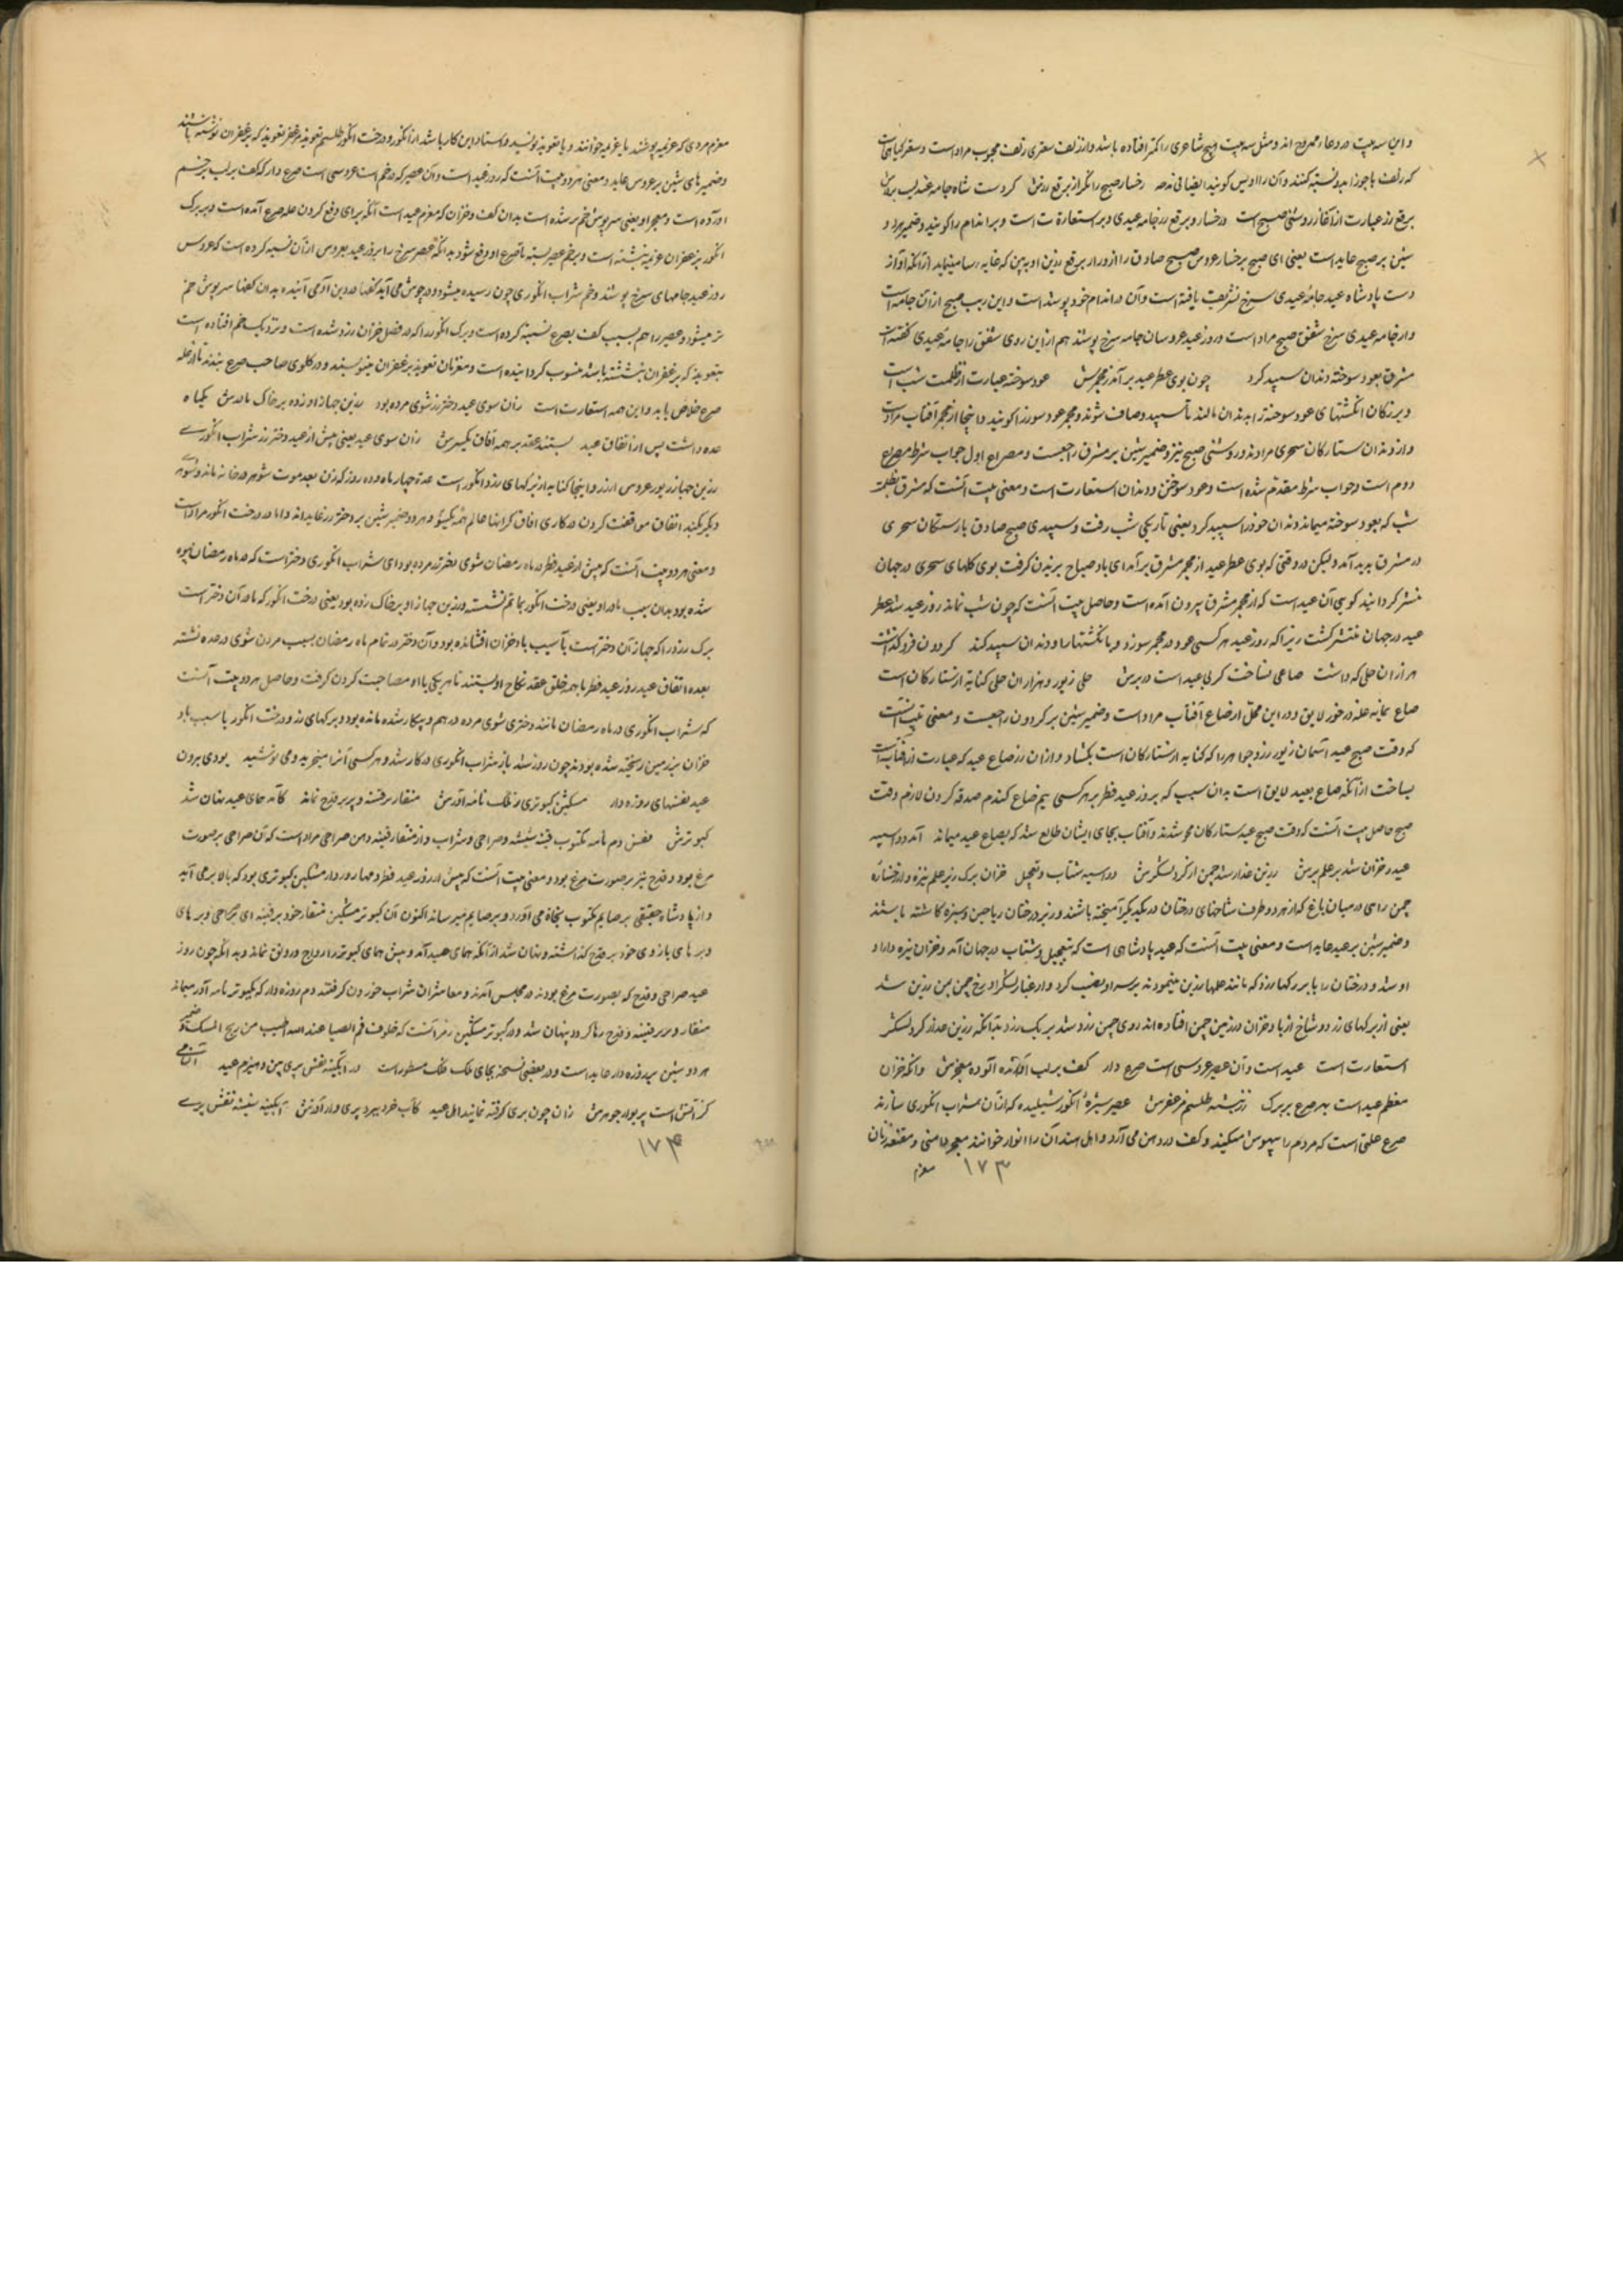 و این سه بیت در دعاء ممدوح اند و مثل سه بیت هیچ شاعری را کمتر افتاده باشد و از زلف سعتری زلف محبوب مراد است و سعتر گیاهی است
که زلف با جوزا بدو نسبت کنند و آن را اویس گویند ایضا فی مدحه رخسار صبح را نگر از برقع زرش کز دست شاه جامه عیدیست در برش
برقع زر عبارت از آغاز روشنی صبح است و رخسار و برقع زر جامه عیدی و بر استعارة ت است و بر اندام را گویند و ضمیر هر دو
شین بر صبح عاید است یعنی ای صبح بر خسار عروس صبح صادق را از ورای برقع زرین او به بین که غایه رسا مینماید از آنکه او از
دست پادشاه عید جامهٔ عیدی سرخ تشریف یافته است و آن در اندام خود پوشیده است و این زیب صبح از آن جامه است
و از جامه عیدی سرخ شفق صبح مراد است و روز عید عروسان جامه سرخ پوشند هم از این روی شفق را جامهٔ عیدی گفته است
مشرق بعود سوخته دندان سپید کرد چون بوی عطر عید برآمد ز مجمرش عود سوخته عبارت از ظلمت شب است
و بزرگان انگشتهای عود سوخته را به دندان مالند تا سپید و صاف شوند و مجمر عود سوز را گویند و اینجا از مجمر آفتاب مراد است
و از دندان ستارگان سحری مرادند و روشنی صبح نیز و ضمیر شین بر مشرق راجعست و مصراع اول جواب شرط مصراع
دوم است و جواب شرط مقدم شده است و عود سوختن و دندان استعارت است و معنی بیت آنست که مشرق بظلمت
شب که بعود سوخته میماند دندان خود را سپید کرد یعنی تاریکی شب رفت و سپیدی صبح صادق با رستگان سحری
در مشرق پدید آمد و لیکن در وقتی که بوی عطر عید از مجمر مشرق برآمد ای باد صباح بر وزیدن گرفت بوی گلهای سحری در جهان
منتشر گردانید گویی آن عید است که از مجمر مشرق بیرون آمده است و حاصل بیت آنست که چون شب نماند روز عید شد عطر
عید در جهان منتشر گشت زیرا که روز عید هر کسی عود در مجمر سوزد و بانگشتها را و دندان سپید کند گردون فرو گذاشت
هزاران حلی که داشت صاعی بساخت کز پی عید است در برش حلی زیور و هزاران حلی کنایه از ستارگان است
صاع پیمانه غله در خور لایق و در این محل از صاع آفتاب مراد است و ضمیر شین بر گردون راجعست و معنی بیت آنست
که وقت صبح عید آسمان زیور زر و جواهر را که کنایه از ستارگان است بگشاد و از آن زر صاع عید که عبارت از آفتاب است
بساخت از آنکه صاع بعید لایق است بدان سبب که بروز عید فطر بر هر کسی نیم صاع گندم صدقه کردن لازم وقت
صبح حاصل بیت آنست که وقت صبح عید ستارگان محو شدند و آفتاب بجای ایشان طالع شد که بصاع عید میماند آمد دو اسپه
عید و خزان شد بر علم برش زرین عذار شد چمن از گرد لشکرش دو اسپه شتاب و تعجیل خزان برگ زیر علم نیزه و از خشانه
چمن راهی در میان باغ که از هر دو طرف شاخهای درختان در یکدیگر آمیخته باشند و زیر درختان ریاحین و سبزه کاشته باشند
و ضمیر شین بر عید عاید است و معنی بیت آنست که عید پادشاهی است که بتعجیل و شتاب در جهان آمد و خزان نیزه دار او
او شد و درختان را با برگها زرد که مانند علمها زرین مینمودند بر سر او نصب کرد و از غبار لشکر او رخ چمن بین زرین شد
یعنی از برگهای زرد و شاخ از باد خزان در زمین چمن افتاده اند روی چمن زرد شد بر یک زرد بآنکه زرین عذار گرد لشکر
استعارت است عید است و آن عصیر عروسی است صرع دار کف بر لب آورده آلوده معجرش و آنکه خزان
معظم عید است بهر صرع بر برگ رز نبشته طلسم مزعفرش عصیر شیرهٔ انگور شیلیده که از آن شراب انگوری سازند
صرع علتی است که مردم را بیهوش میکند و کف در دهن می آرد و اهل هند آن را انوار خوانند معجر دامنی و مقنعه زنان
۱۷۳ معزم
معزم مردی که عزیمه پوشند یا عزیمه خوانند و یا تعویذ نویسد و استاد این کار باشد از انگور و درخت انگور طلسم تعویذ مزعفر تعویذ که بزعفران نوشته باشند
و ضمیرهای شین بر عروس عاید و معنی هر دو بیت آنست که روز عید است و آن عصیر که در خم است عروسی است صرع دار که کف بر لب خم
آورده است و معجر او یعنی سرپوش خم تر شده است بدان کف و خزان که معزم عید است آنکه برای دفع کردن علة صرع آمده است و بر برگ
انگور بزعفران عزیمه نبشته است و بر خم عصیر بسته تا صرع او دفع شود بدانکه عصیر سرخ را بروز عید بعروس از آن نسبه کرده است که عروس
روز عید جامهای سرخ پوشند و خم شراب انگوری چون رسیده میشود و در جوش می آید کفها در دین آدمی آینده بدان کفها سرپوش خم
تر میشود و عصیر را هم بسبب کف بصرع نسبة کرده است و برگ انگور را که در فصل خزان زرد شده است و نزدیک خم افتاده است
بتعویذ که بزعفران نبشته باشد منسوب گردانیده است و معزمان تعویذ بزعفران مینویسند و در گلوی صاحب صرع بندند تا از علة
صرع خلاص یابد و این همه استعارت است زان سوی عید دختر رز شوی مرده بود زرین جهاز او زده بر خاک مادرش یکماه
عده داشت پس از اتفاق عید بستند عقد بر همه آفاق یکسرش زان سوی عید یعنی پیش از عید دختر رز شراب انگوری
زرین جهاز زیور عروس از زر و اینجا کنایه از برگهای زرد انگور است عدة چهار ماه و ده روز که زن بعد موت شوهر در خانه ماند و شوهر
دیگر نکند اتفاق موافقت کردن در کاری آفاق کرانها عالم همه یکسو و هر دو ضمیر شین بر دختر رز عاید اند و اما در درخت انگور مراد است
و معنی هر دو بیت آنست که پیش از عید فطر در ماه رمضان شوی دختر رز مرده بود ای شراب انگوری دختر است که در ماه رمضان بیوه
شده بود بدان سبب مادر او یعنی درخت انگور بماتم نشسته و زرین جهاز او بر خاک زده بود یعنی درخت انگور که مادر آن دختر است
برگ زرد را که جهاز آن دختر است بآسیب باد خزان افشانده بود و آن دختر در تمام ماه رمضان بسبب مردن شوی در عده نشسته
بعده اتفاق عید روز عید فطر با همه خلق عقد نکاح او بستند تا هر یکی با او مصاحبت کردن گرفت و حاصل هر دو بیت آنست
که شراب انگوری در ماه رمضان مانند دختری شوی مرده درهم و بیکار شده مانده بود و برگهای زرد درخت انگور با سبب باد
خزان بر زمین ریخته شده بودند چون روز شد باز شراب انگوری در کار شد و هر کسی آنرا میخرید و می نوشید بودی برون
عید نفسهای روزه دار مشکین کبوتری ز فلک نامه آورش منقار بر قنینه و پر بر قدح نماند کامد همای عید نهان شد
کبوترش نفس دم نامه مکتوب قنینه شیشه و صراحی و شراب و از منقار قنینه دهن صراحی مراد است که آن صراحی بر صورت
مرغ بود و قدح نیز بر صورت مرغ بود و معنی بیت آنست که پیش از روز عید فطر دمها روزه دار مشکین کبوتری بود که بالا بر می آید
و از پادشاه حقیقی بر صایم مکتوب نجاة می آورد و بر صایم میرساند اکنون آن کبوتر مشکین منقار خود بر قنینه ای صراحی و پر های
و بر های بازوی خود بر قدح گذاشته و نهان شد از آنکه همای عید آمد و پیش همای کبوتر را رواج و رونق نماند و بدانکه چون روز
عید صراحی و قدح که بصورت مرغ بودند در مجلس آمدند و معاشران شراب خوردن گرفتند دم روزه دار که بکبوتر نامه آور میماند
منقار و پر بر قنینه و قدح رها کرد و پنهان شد و در کبوتر مشکین رمز آنست که خلوف فم الصیا عند الله اطیب من ریح المسک و ضمیر
هر دو شین بر روزه دار عاید است و در بعضی نسخه بجای ملک فلک مسطور است در آبگینه نقش پری بین و میزم عید آتشی
کز آتش است پر بوار جوهرش زان چون پری گرفته نمایند اهل عید کاب خرد ببرد پری وار آذرش آبگینه شیشه نقش پری
۱۷۴